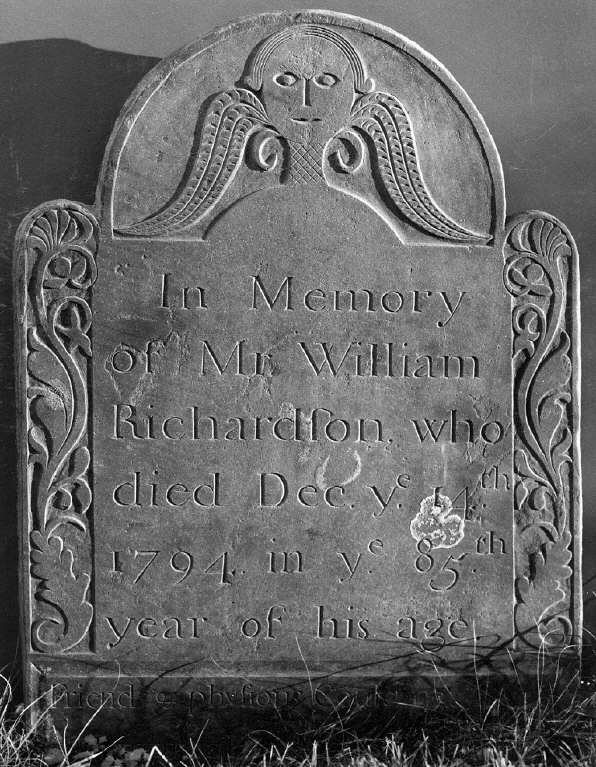 In Memory
of Mr. William
Richardſon, who
died Dec. yͤ. 14.ᵗʰ
1794. in yͤ. 85.ᵗʰ
year of his age
Friends & phyſicians